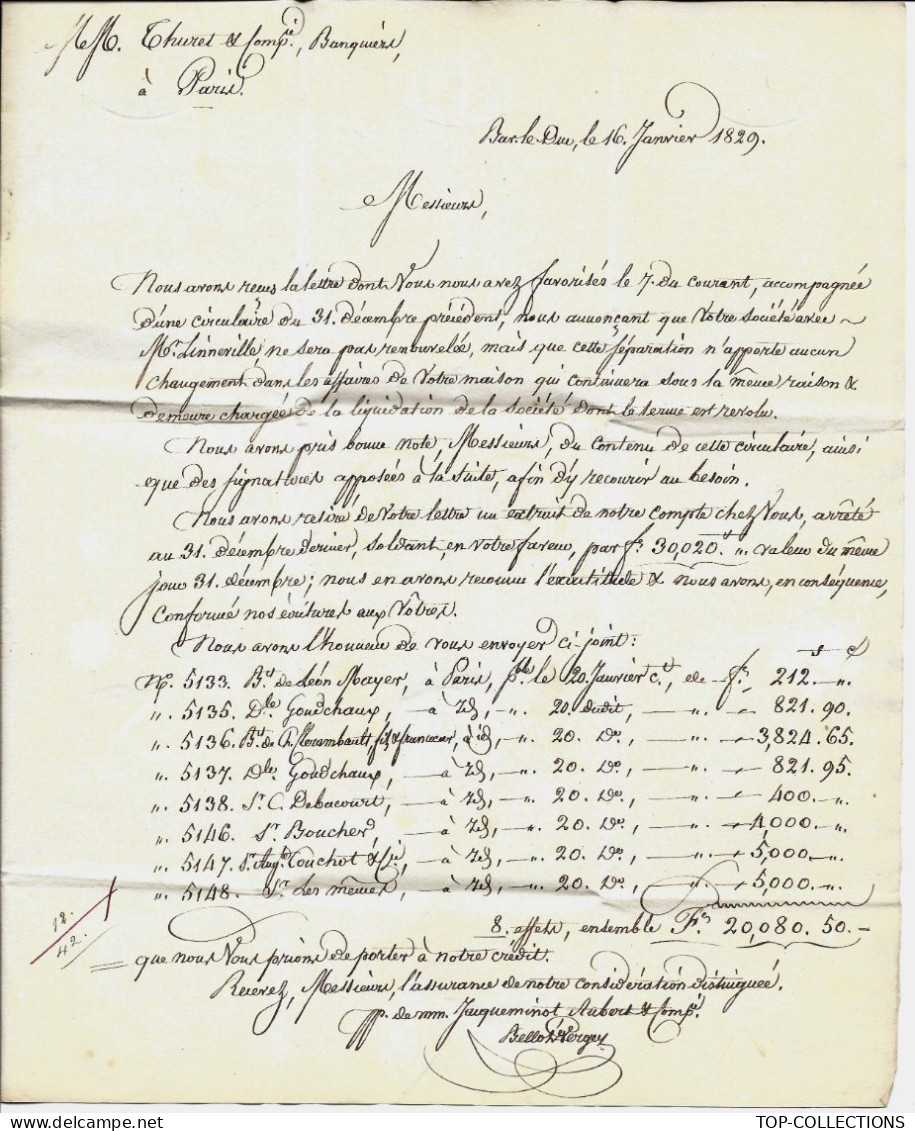 MM. Thuret & Comp.ie, Banquiers,
à Paris.
Bar-le-Duc, le 16. Janvier 1829.
Messieurs,
Nous avons reçus la lettre dont Vous nous avez favorisés le 7. du courant, accompagnée
d'une circulaire du 31. décembre précédent, nous annonçant que Votre Société avec
Mr. Linneville ne sera pas renouvelée, mais que cette séparation n'apporte aucun
changement dans les affaires de Votre maison qui continuera sous la même raison &
demeure chargée de la liquidation de la société dont le terme est revolu.
Nous avons pris bonne note, Messieurs, du contenu de cette circulaire, ainsi
que des signatures apposées à la suite, afin d'y recourir au besoin.
Nous avons retiré de Votre lettre un extrait de notre compte chez Vous, arrêté
au 31. décembre dernier, soldant, en Votre faveur, par fs. 30,020. " valeur du même
jour 31. décembre; nous en avons reconnu l'exactitude & nous avons, en conséquence,
conformé nos écritures aux Vôtres.
Nous avons l'honneur de vous envoyer ci-joint:
No. 5133. Bt. de Léon Mayer, à Paris, p.ble le 20. Janvier ct., de fs. 212. ".
". 5135. Dlle Goudchaux, — à id, —". 20. dudit, —". 821. 90.
". 5136. Bt. de Ch. Florambault fils & francoeur, à id, —". 20. do., —". 3,824. 65.
". 5137. Dlle Goudchaux, — à id, —". 20. do., —". 821. 95.
". 5138. Sr. C. Debacourt, — à id, —". 20. do., —". 400. ".
". 5146. Sr. Boucher, — à id, —". 20. do., —". 4,000. ".
". 5147. Sr. Aug.te Couchot & Cie, — à id, —". 20. do., —". 5,000. ".
". 5148. Sr. Les mêmes, — à id, —". 20. do., —". 5,000. ".
12. / 42.
8. effets, ensemble Fs 20,080. 50.
que nous Vous prions de porter à notre crédit.
Recevez, Messieurs, l'assurance de notre considération distinguée.
pp. de mm. Jacqueminot Aubert & Comp.ie
TOP-COLLECTIONS